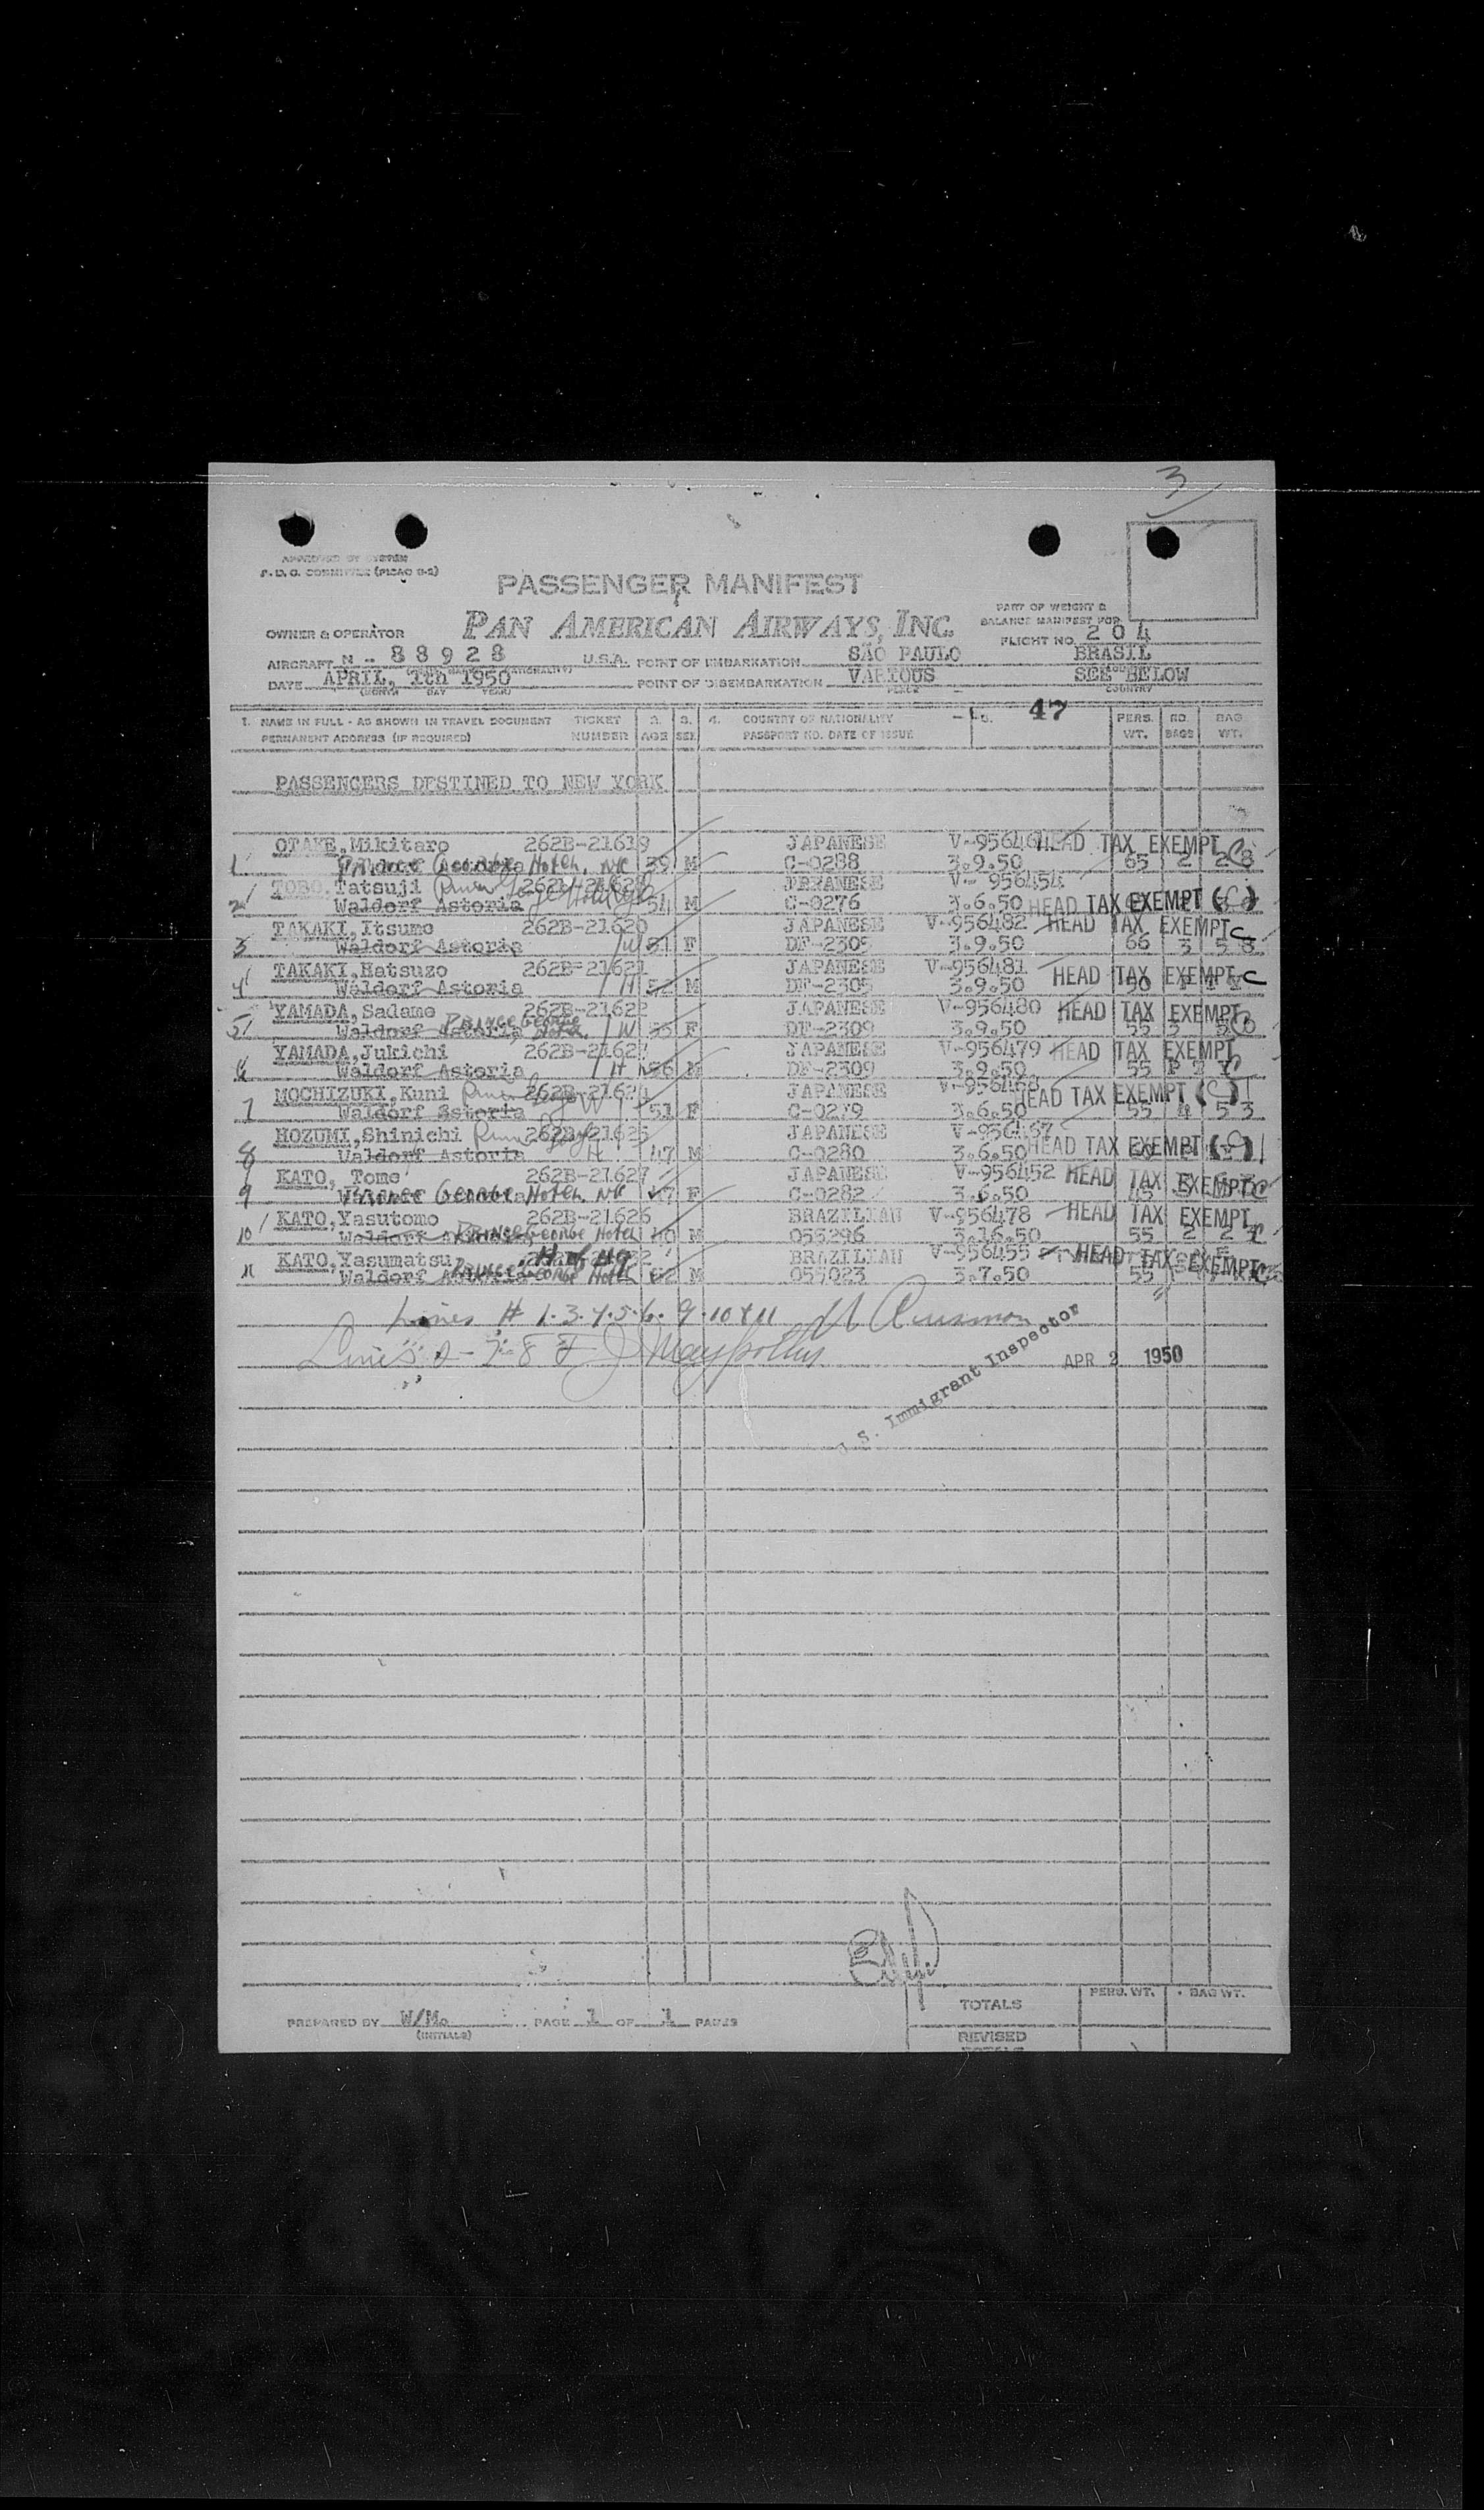 3
APPROVED BY SYSTEM
P.D.C. COMMITTEE (PICAO G-2)
PASSENGER MANIFEST
PART OF WEIGHT &
BALANCE MANIFEST FOR
OWNER & OPERATOR PAN AMERICAN AIRWAYS, INC. FLIGHT NO. 204
AIRCRAFT N - 88928 U.S.A. POINT OF EMBARKATION SÃO PAULO BRASIL
DATE APRIL, 1th 1950 POINT OF DISEMBARKATION VARIOUS SEE BELOW
(MONTH DAY YEAR) PLACE COUNTRY
1. NAME IN FULL - AS SHOWN IN TRAVEL DOCUMENT TICKET 2. 3. 4. COUNTRY OF NATIONALITY 47 PERS. NO. BAG
PERMANENT ADDRESS (IF REQUIRED) NUMBER AGE SEX PASSPORT NO. DATE OF ISSUE WT. BAGS WT.
PASSENGERS DESTINED TO NEW YORK
OTAKE, Mikitaro 262B-21619 JAPANESE HEAD TAX EXEMPT
1 Prince George Hotel, NYC 39 M C-0288 3.9.50 65 2 28
TOBO. Tatsuji JAPANESE V- 956454
2 Waldorf Astoria 54 M C-0276 3.6.50 HEAD TAX EXEMPT (C)
TAKAKI, Itsumo 262B-21620 JAPANESE V-956482 HEAD TAX EXEMPT C
3 Waldorf Astoria W 51 F DF-2305 3.9.50 66 3 58
TAKAKI, Hatsuzo 262B-21621 JAPANESE V-956481 HEAD TAX EXEMPT C
4 Waldorf Astoria H 52 M DF-2305 3.9.50
YAMADA, Sadamo 262B-21622 JAPANESE V-956480 HEAD TAX EXEMPT
5 Waldorf Astoria Prince George Hotel W 55 F DF-2309 3.9.50 55 3
YAMADA, Jukichi JAPANESE V-956479 HEAD TAX EXEMPT
6 Waldorf Astoria H 56 M DF-2309 3.9.50 55
MOCHIZUKI, Kuni 262B-21624 JAPANESE V-956468 HEAD TAX EXEMPT (C)
7 Waldorf Sstoria 51 F C-0279 3.6.50 55 4 53
HOZUMI, Shinichi 262B-21625 JAPANESE V-956467
8 Waldorf Astoria H 47 M C-0280 3.6.50 HEAD TAX EXEMPT (C)
KATO, Tome 262B-21627 JAPANESE V-956452 HEAD TAX EXEMPT
9 Prince George Hotel NYC 47 F C-0282 3.6.50
KATO, Yasutomo 262B-21626 BRAZILIAN V-956478 HEAD TAX EXEMPT
10 Waldorf Prince George Hotel M 055296 3.16.50 55 2
KATO, Yasumatsu H of #9 BRAZILIAN V-956455 HEAD TAX EXEMPT
11 Waldorf Prince George Hotel M 3.7.50 55
Lines # 1.3.4.5.6. 9.10 & 11
Lines 2 - 7 - 8
U. S. Immigrant Inspector
APR 2 1950
TOTALS PERS. WT. BAG WT.
PREPARED BY W/Mo PAGE 1 OF 1 PAGES
(INITIALS)
REVISED